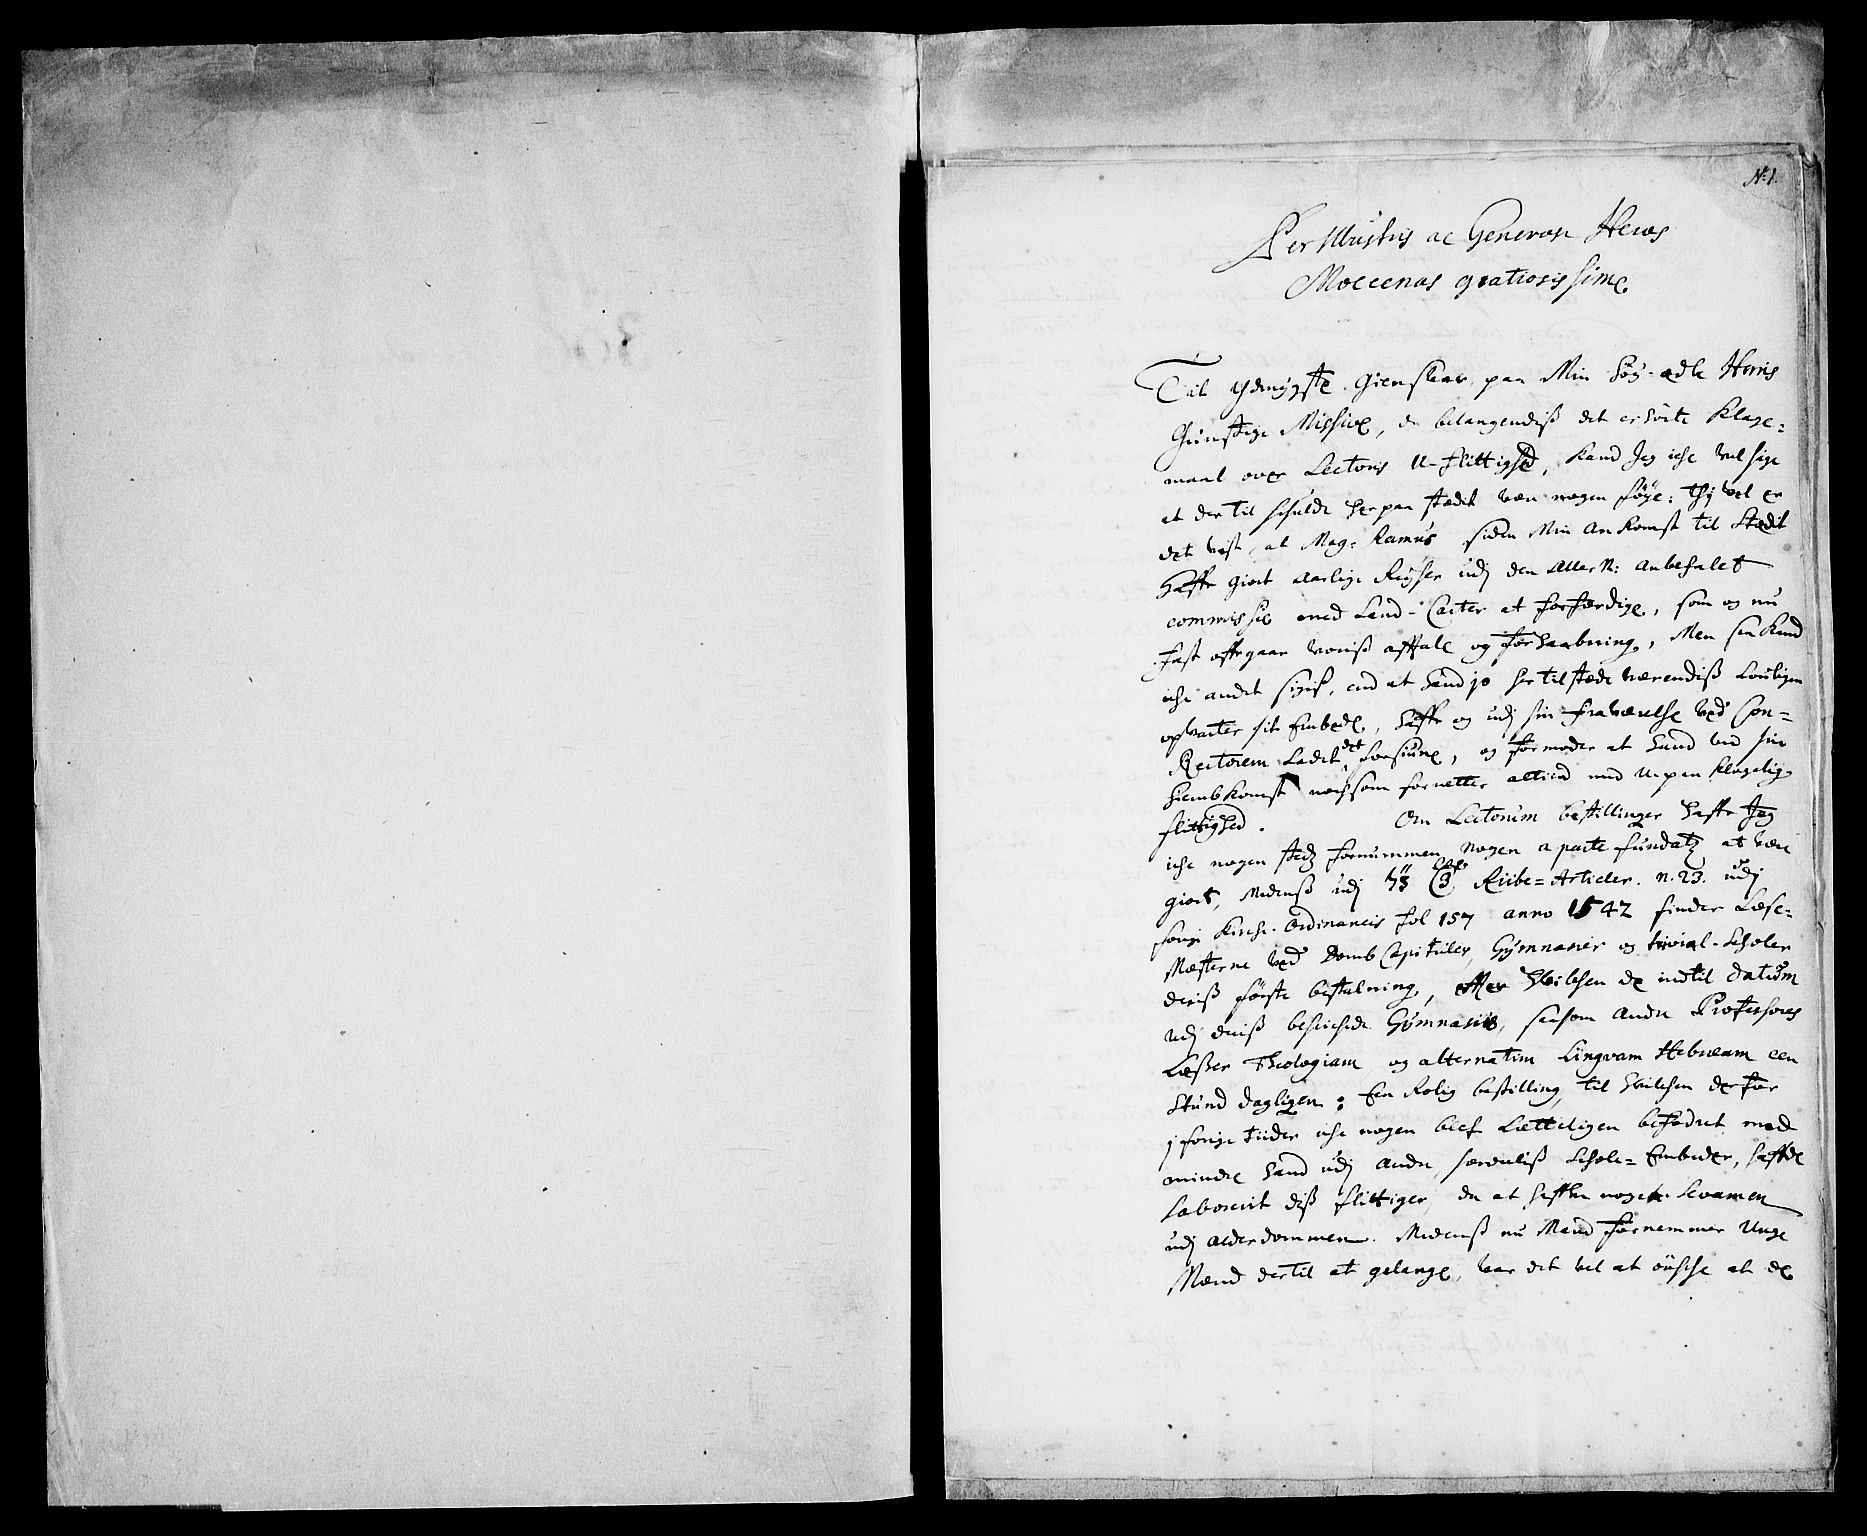 N: 1.
Per Illustris ac Generose Heros
Moecenas gratiosissime
Til ydmygste Giensvar paa Min Høy-ædle Herris
Gunstige Missive, da belangendiß det erhörte Klage=
maal over Lectoris U-flittighed, kand Jeg iche vel sige
at der til schulde her paa stædet være nogen føye: thj vel er
det vist, at Mag: Ramus siden Min Ankomst til Stædet
haffr giort aarlige Reyser udj den Aller N: anbefalet
commissie med Land-Carter at forfærdige, som og nu
fast offrgaar voriß afftale og forhaabning, Men saa kand
iche andet sigis, end at hand jo her tilstæde værendiß Lovligen
opvarter sit Embede, haffr og udj sin fraværelse ved Con=
Rectorem Ladet det forsiune, og formoder at hand ved sin
hiembkomst noch som forretter altiid med u-paaklagelig
flittighed. Om Lectorum bestillinger haffr Jeg
iche nogen sted fornummen nogen aparte fundatz at være
giort, Medenß udj Riibe=Articler. n. 23. udj
forige Kirche-Ordinancis fol 157 anno 1542 finder Læse=
Mesterne ved Domb Capituler, Gymnasier og trivial-Scholer
deriß første bestalning, effter hvilchen de indtil datum
udj deriß beschichede Gymnasiis, saasom andre Professores
Læßer Theologiam og alternatim Lingvam Hebræam een
Stund dagligen: Een Rolig bestilling til hvilchen derfor
j forige tiider iche nogen blef Lætteligen befodret med
mindre hand udj andre særdeliß Schole=Embeder, haffde
laborerit diß flittiger, da at haffve noget Levamen
udj alderdommen. Medenß nu Mand fornemmer Unge
Mænd dertil at gelange, var det vel at önsche at de